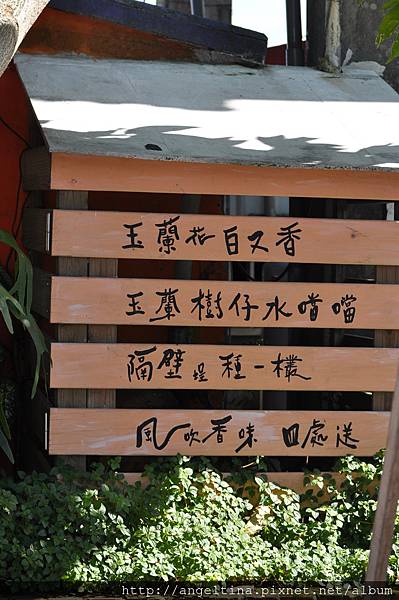 玉蘭花白又香
玉蘭樹仔水噹噹
隔壁是種一欉
風吹香味四處送
http://angeltina.pixnet.net/album